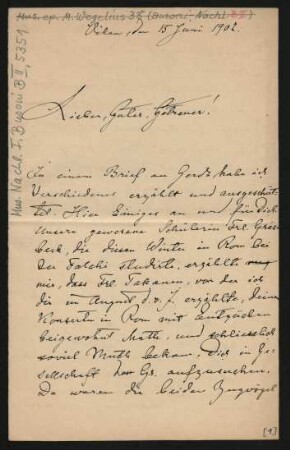 Mus. ep. M. Wegelius 38 (Busoni-Nachl. B II)
Mus. Nachl. F. Busoni B II, 5351
den 15 Juni 1902.
Lieber, Guter, Getreuer!
In einem Brief an Gerda habe ich
Verschiedenes erzählt und ausgeschüt-
tet. Hier Einiges an und für Dich.
Unsere gewesene Schülerin Frl. Gries
beck, die diesen Winter in Rom bei
studirte, erzählte
mir, dass Frl. von der ich
Dir im August d. v. J. erzählte, Deine
Konzerte in Rom mit Entzücken
beigewohnt hatte, und schliesslich
soviel Muth bekam, Dich in Ge-
sellschaft der Gr. aufzusuchen.
Da waren die beiden Zugvögel
[1]